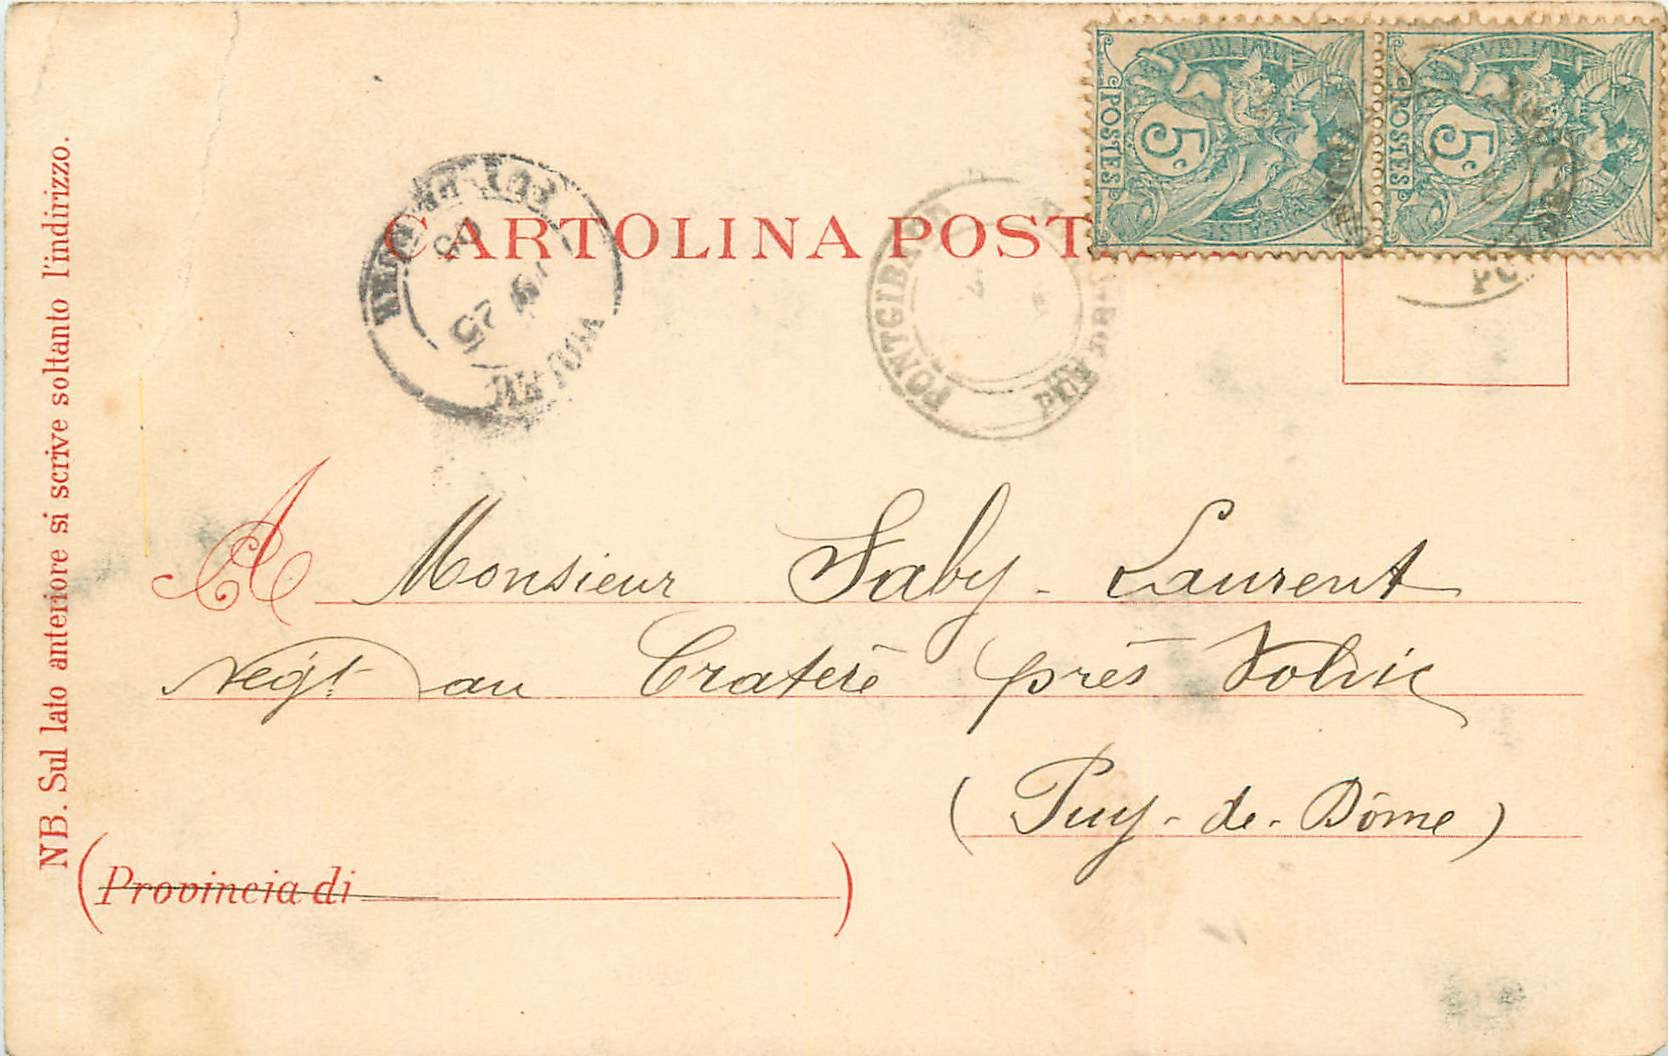 CARTOLINA POST
RÉPUBLIQUE
POSTES
5c
RÉPUBLIQUE
POSTES
5c
PONTGIBAUD
PUY
25
03
A Monsieur Saby - Laurent
Négt au Cratère près Volvic
(Puy-de-Dôme)
(Provincia di )
NB. Sul lato anteriore si scrive soltanto l'indirizzo.